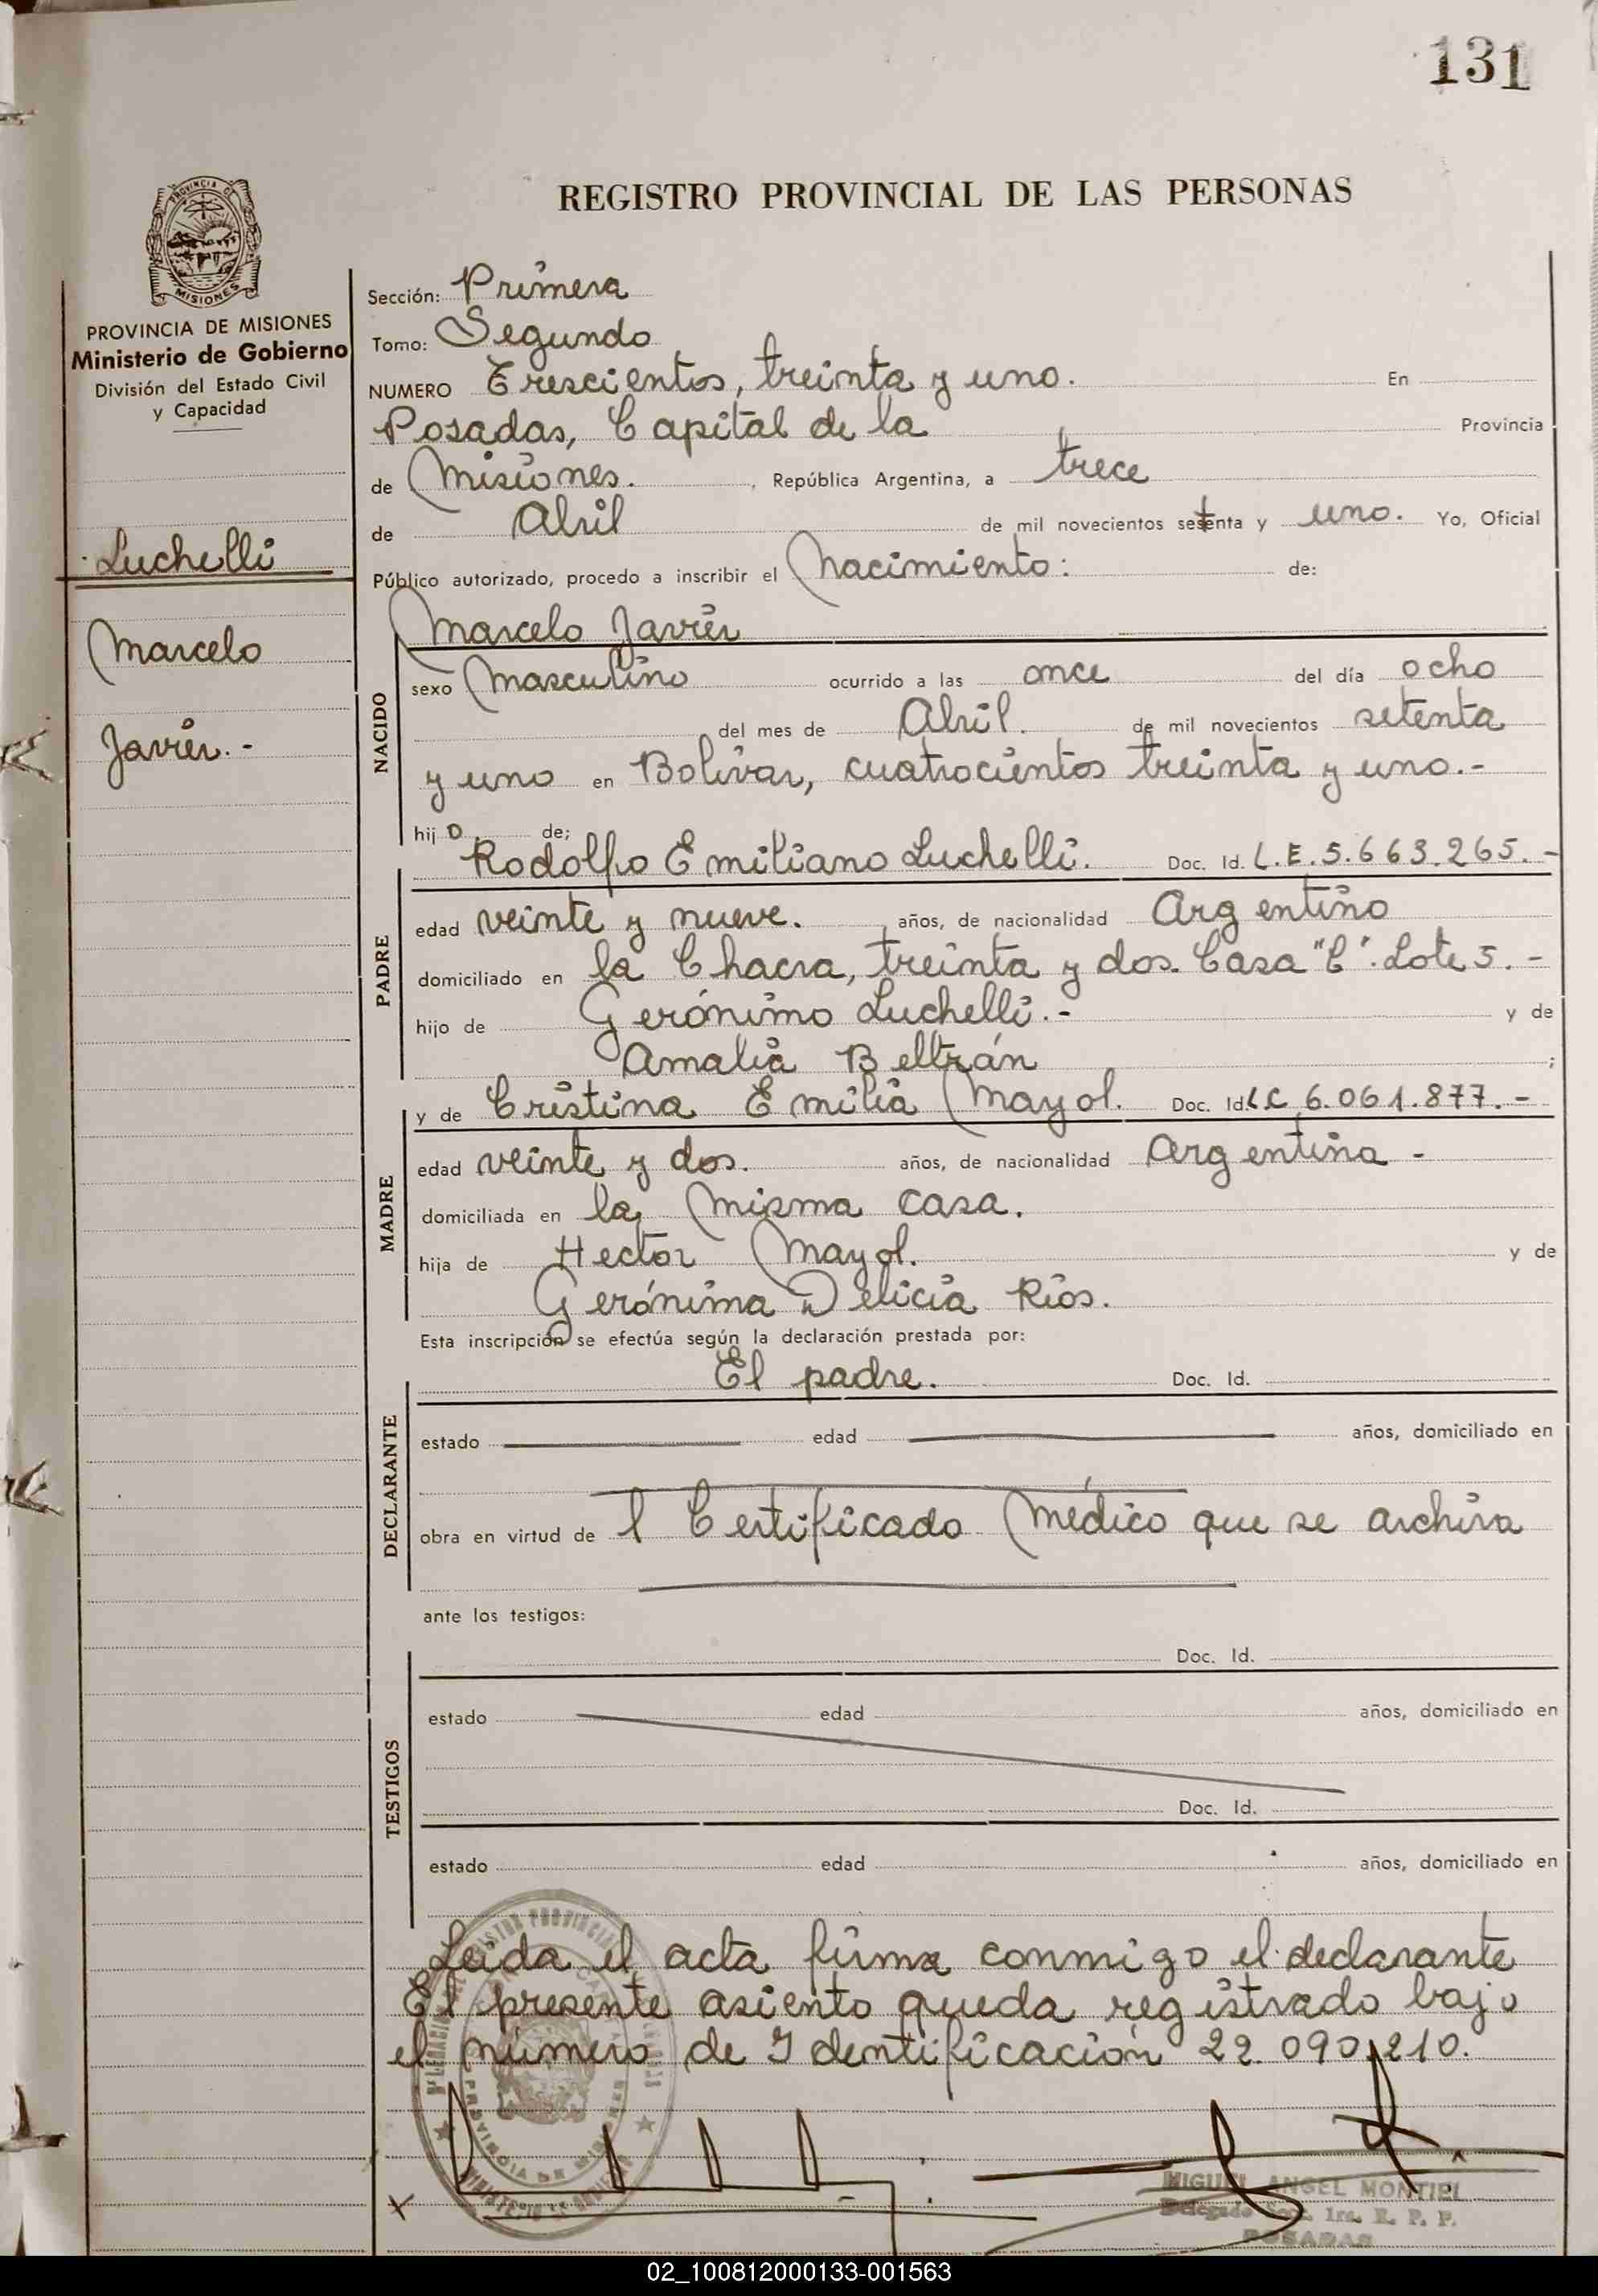 131
REGISTRO PROVINCIAL DE LAS PERSONAS
PROVINCIA DE
MISIONES
PROVINCIA DE MISIONES
Ministerio de Gobierno
División del Estado Civil
y Capacidad
Luchelli
Marcelo
Javier.-
Sección: Primera
Tomo: Segundo
NUMERO Trescientos, treinta y uno. En
Posadas, Capital de la Provincia
de Misiones. , República Argentina, a trece
de Abril de mil novecientos setenta y uno. Yo, Oficial
Público autorizado, procedo a inscribir el Nacimiento: de:
Marcelo Javier
NACIDO
sexo Masculino ocurrido a las once del día ocho
del mes de Abril. de mil novecientos setenta
y uno en Bolivar, cuatrocientos treinta y uno.-
hijo de;
Rodolfo Emiliano Luchelli. Doc. Id. L.E.5.663.265.-
PADRE
edad veinte y nueve. años, de nacionalidad Argentino
domiciliado en la Chacra, treinta y dos. Casa "C". Lote 5.-
hijo de Gerónimo Luchelli.- y de
Amalia Beltrán ;
y de Cristina Emilia Mayol. Doc. Id. L.C 6.061.877.-
MADRE
edad veinte y dos. años, de nacionalidad Argentina -
domiciliada en la misma casa.
hija de Hector Mayol. y de
Gerónima Delicia Rios.
Esta inscripción se efectúa según la declaración prestada por:
El padre. Doc. Id.
DECLARANTE
estado edad años, domiciliado en
obra en virtud de l Certificado Médico que se archiva
ante los testigos:
Doc. Id.
TESTIGOS
estado edad años, domiciliado en
Doc. Id.
estado edad años, domiciliado en
Leida el acta firma conmigo el declarante
El presente asiento queda registrado bajo
el número de Identificación 22.090.210.
MIGUEL ANGEL MONTIEL
Delegado Sec. 1ra. R. P. P.
POSADAS
02_100812000133-001563